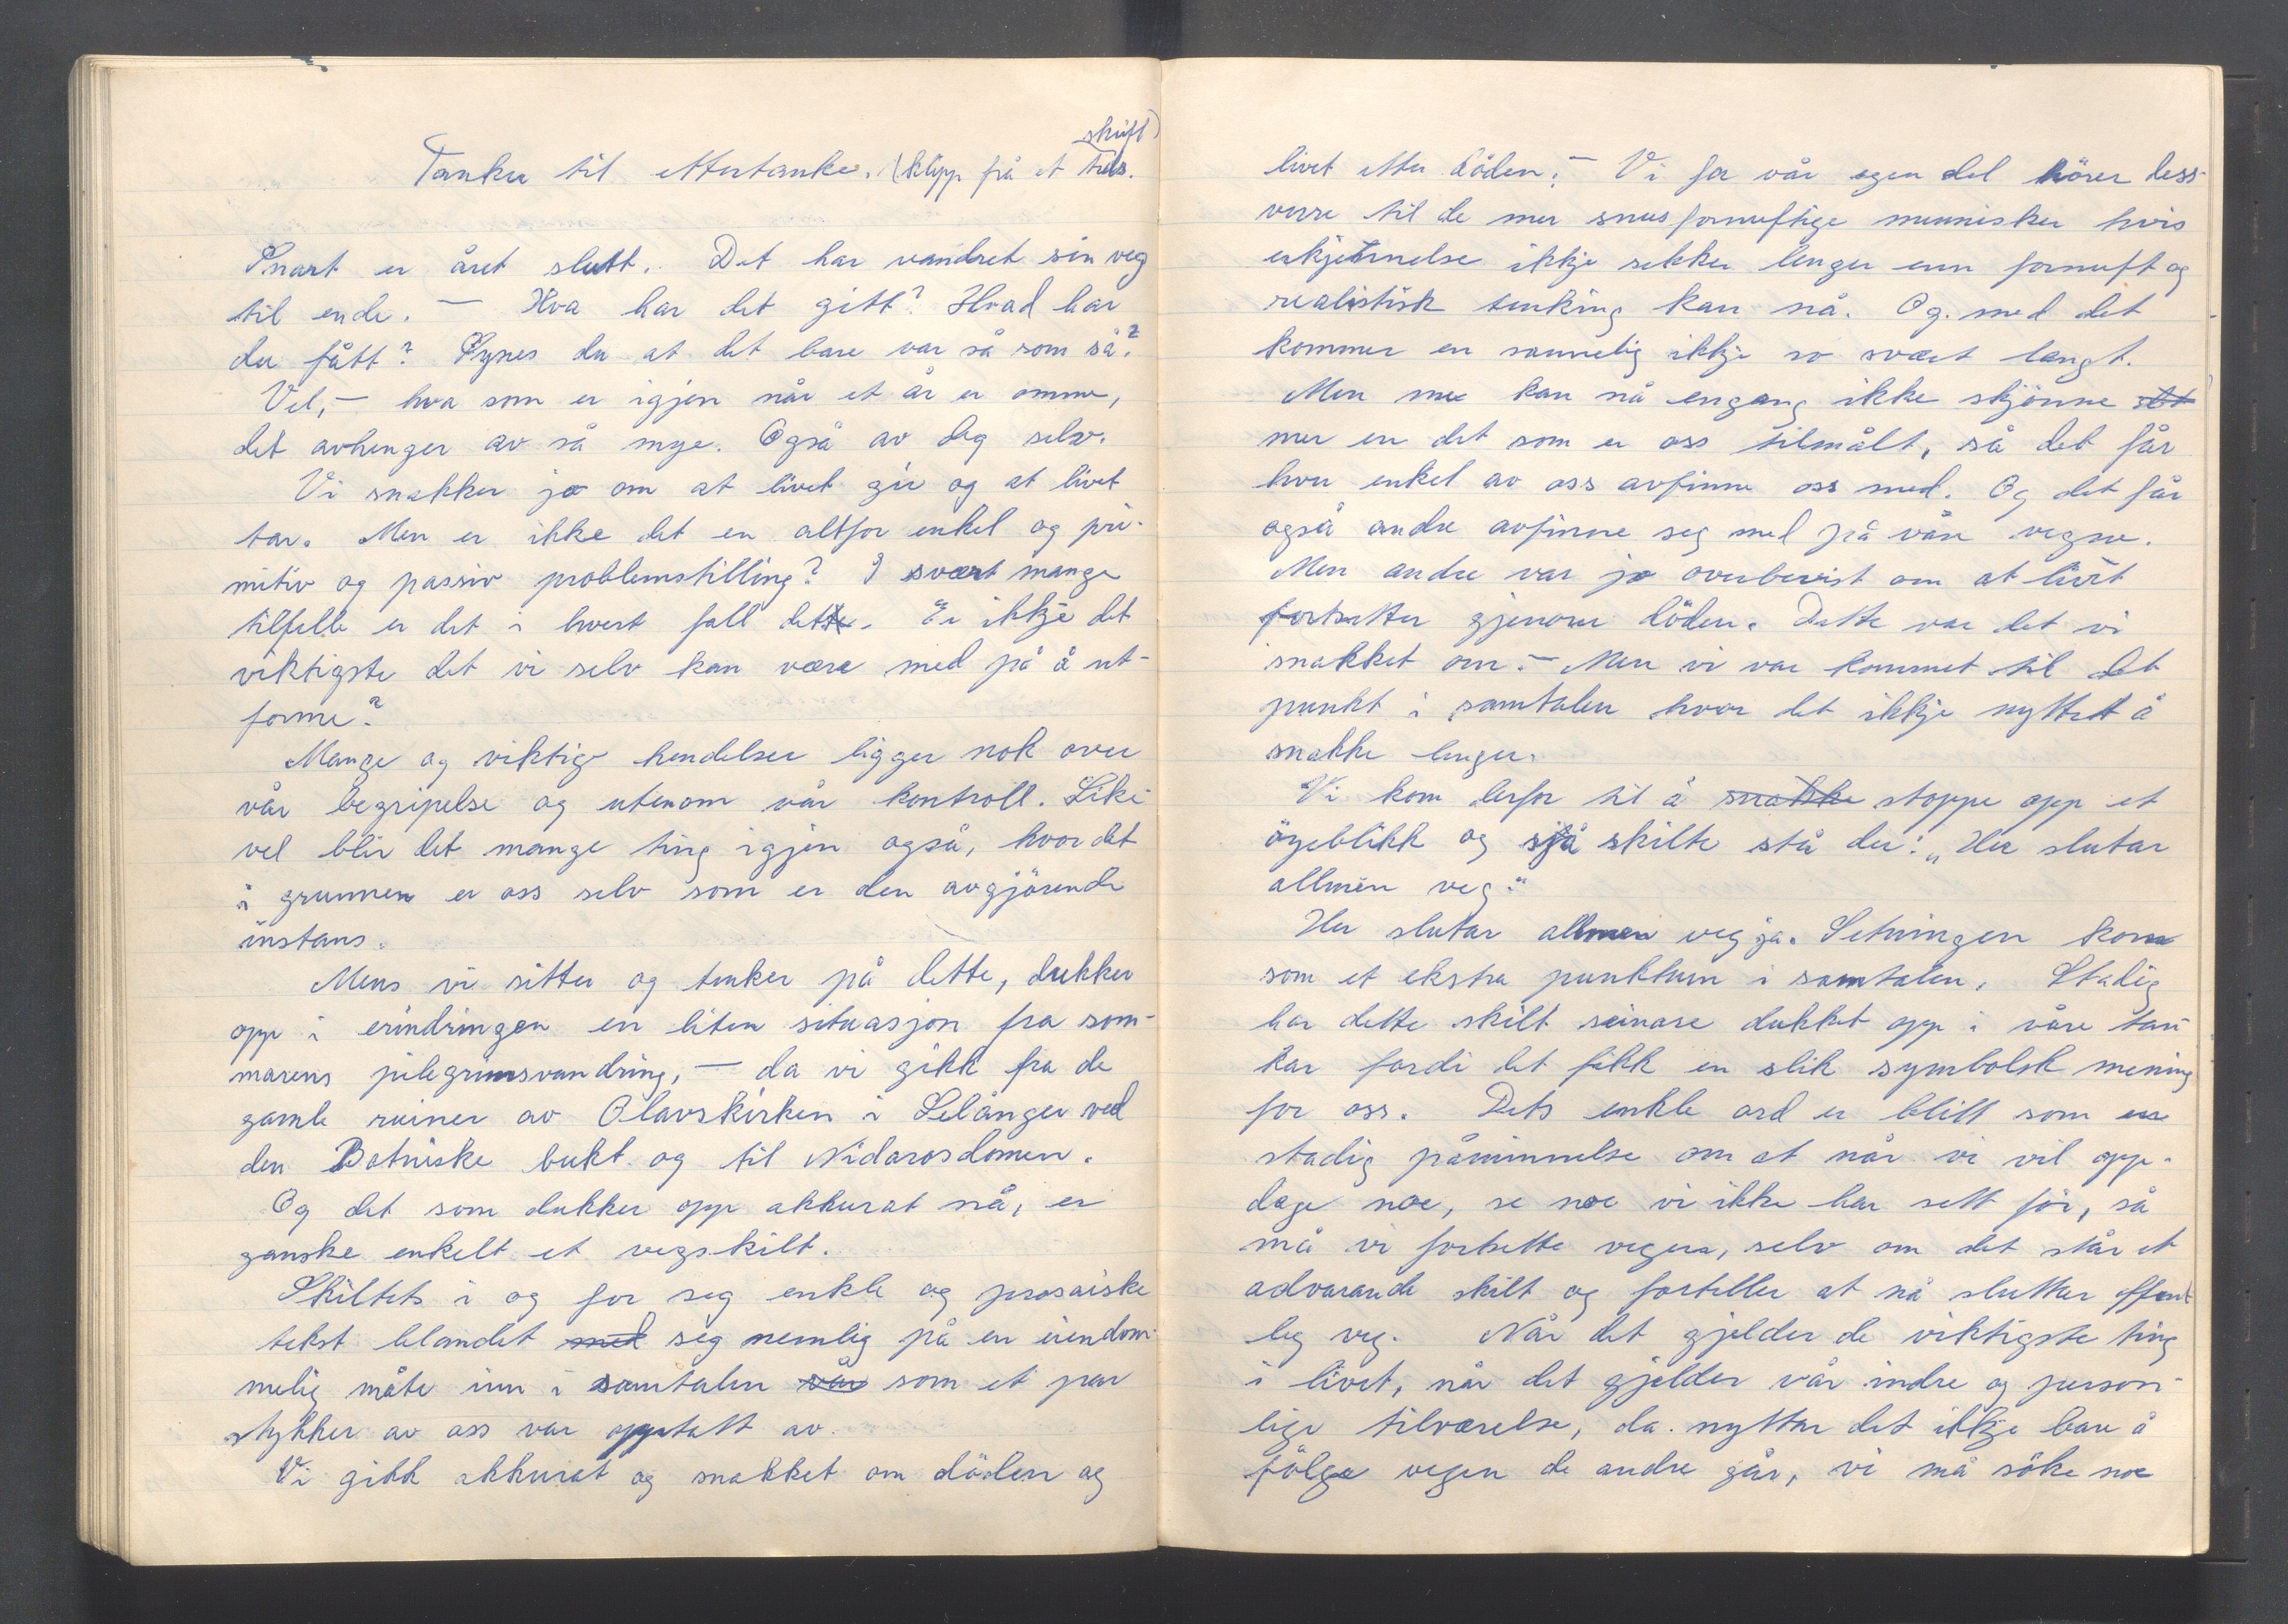 Tanker til ettertanke. (klipp frå et tids.
skrift)
Snart er året slutt. Det har vandret sin veg
til ende. — Hva har det gitt? Hvad har
du fått? Synes du at det bare var så som så?
Vel, — hva som er igjen når et år er omme,
det avhenger av så mye. Også av deg selv.
Vi snakker jo om at livet gir og at livet
tar. Men er ikke det en altfor enkel og pri-
mitiv og passiv problemstilling? I svært mange
tilfelle er det i hvert fall dette. Er ikkje det
viktigste det vi selv kan være med på å ut-
forme?
Mange og viktige hendelser ligger nok over
vår begripelse og utenom vår kontroll. Like-
vel blir det mange ting igjen også, hvor det
i grunnen er oss selv som er den avgjörende
instans.
Mens vi sitter og tenker på dette, dukker
opp i erindringen en liten situasjon fra som-
marens pilegrimsvandring, — da vi gikk fra de
gamle ruiner av Olavskirken i Selånger ved
den Botniske bukt og til Nidarosdomen.
Og det som dukker opp akkurat nå, er
ganske enkelt et vegskilt.
Skiltets i og for seg enkle og prosaiske
tekst blandet med seg nemlig på en eiendom-
melig måte inn i samtalen vår som et par
stykker av oss var opptatt av.
Vi gikk akkurat og snakket om döden og
livet etter döden. — Vi for vår egen del hörer dess-
verre til de mer snusfornuftige mennisker hvis
erkjennelse ikkje rekker lenger enn fornuft og
realistisk tenking kan nå. Og med det
kommer en sannelig ikkje so svært langt.
Men me kan nå engang ikke skjönne
mer en det som er oss tilmålt, så det får
hver enkel av oss avfinne oss med. Og det får
også andre avfinne seg med på våre vegne.
Men andre var jo overbevist om at livet
fortsetter gjenom döden. Dette var det vi
snakket om. — Men vi var kommet til det
punkt i samtalen hvor det ikkje nyttet å
snakke lenger.
Vi kom derfor til å snakke stoppe opp et
öyeblikk og sjå skilte stå der: „Her slutar
allmen veg."
Her slutar allmen veg ja. Setningen kom
som et ekstra punktum i samtalen. Stadig
har dette skilt seinare dukket opp i våre tan-
kar fordi det fikk en slik symbolsk mening
for oss. Dets enkle ord er blitt som en
stadig påminnelse om at når vi vil opp-
dage noe, se noe vi ikke har settför, så
må vi fortsette vegen, selv om det står et
advarande skilt og forteller at nå slutter offent
leg veg. Når det gjelder de viktigste ting
i livet, når det gjelder vår indre og person-
lige tilværelse, da nyttar det ikkje bare å
fölge vegen de andre går, vi må söke noe